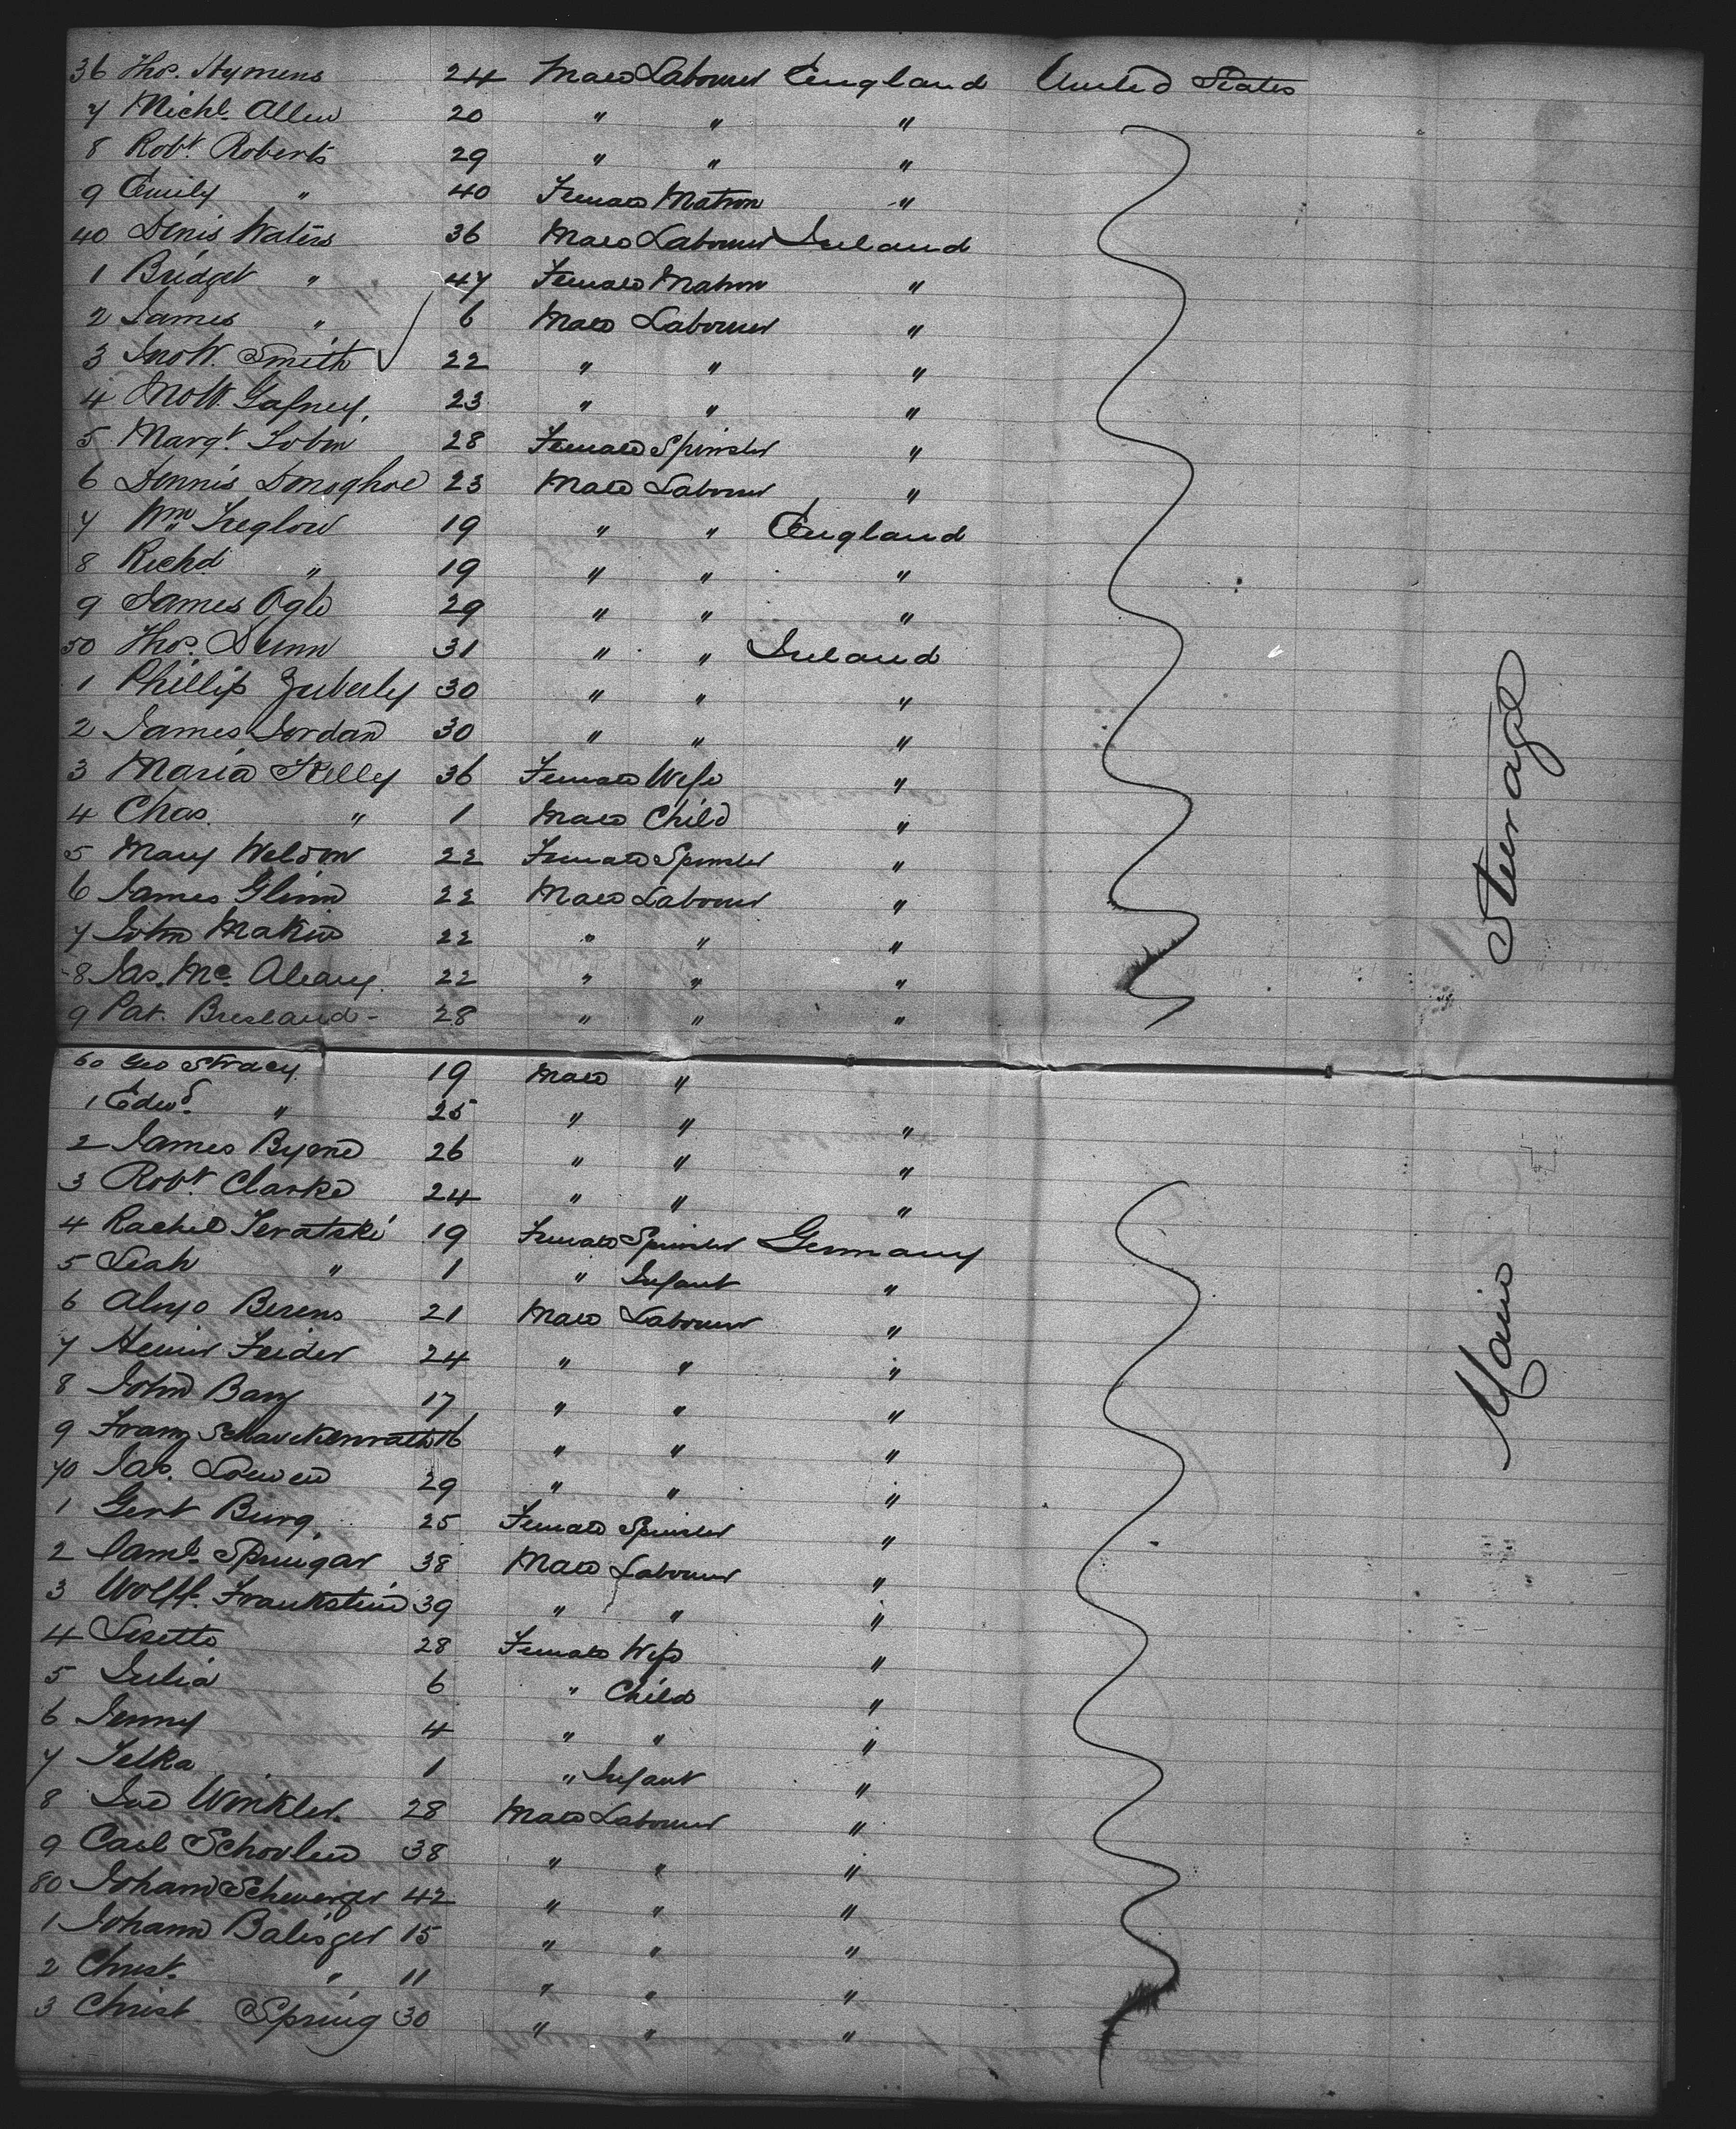 36 Thos. Hymens 24 Male Labourer England United States
7 Michl. Allen 20 " " "
8 Robt. Roberts 29 " " "
9 Emily " 40 Female Matron "
40 Denis Waters 36 Male Labourer Ireland
1 Bridget " 47 Female Matron "
2 James " 6 Male Labourer "
3 Jno W. Smith 22 " " "
4 Gafney. 23 " " "
5 Margt. Tobin 28 Female Spinster "
6 Dennis Donoghoe 23 Male Labourer "
7 Wm Treglow 19 " " England
8 Richd. " 19 " " "
9 James Ogle 29 " " "
50 Thos. Dunn 31 " " Ireland
1 Phillip 30 " " "
2 James Jordan 30 " " "
3 Maria Kelly 36 Female Wife "
4 Chas. " 1 Male Child "
5 Mary Weldon 22 Female Spinster "
6 James Glinn 22 Male Labourer "
7 John Makin 22 " " "
8 Jas. Mc. Aleavy. 22 " " "
9 Pat. Bresland - 28 " " "
Steerage
60 Geo Stracy 19 Male "
1 Edwd. " 25 " " "
2 James Byrne 26 " " "
3 Robt. Clarke 24 " " "
4 Rachel 19 Female Spinster Germany
5 Leah " 1 " Infant "
6 Berens 21 Male Labourer "
7 24 " " "
8 John 17 " " "
9 Franz 16 " " "
70 Jas. Loewen 29 " " "
1 Gert Burg. 25 Female Spinster "
2 38 Male Labourer "
3 Wolff. Frankstein 39 " " "
4 Lisette 28 Female Wife "
5 Julia 6 " Child "
6 Jenny 4 " " "
7 1 " Infant "
8 Winkler. 28 Male Labourer "
9 Carl 38 " " "
80 Johann 42 " " "
1 Johann Balisger 15 " " "
2 Christ. " 11 " " "
3 Christ Spring 30 " " "